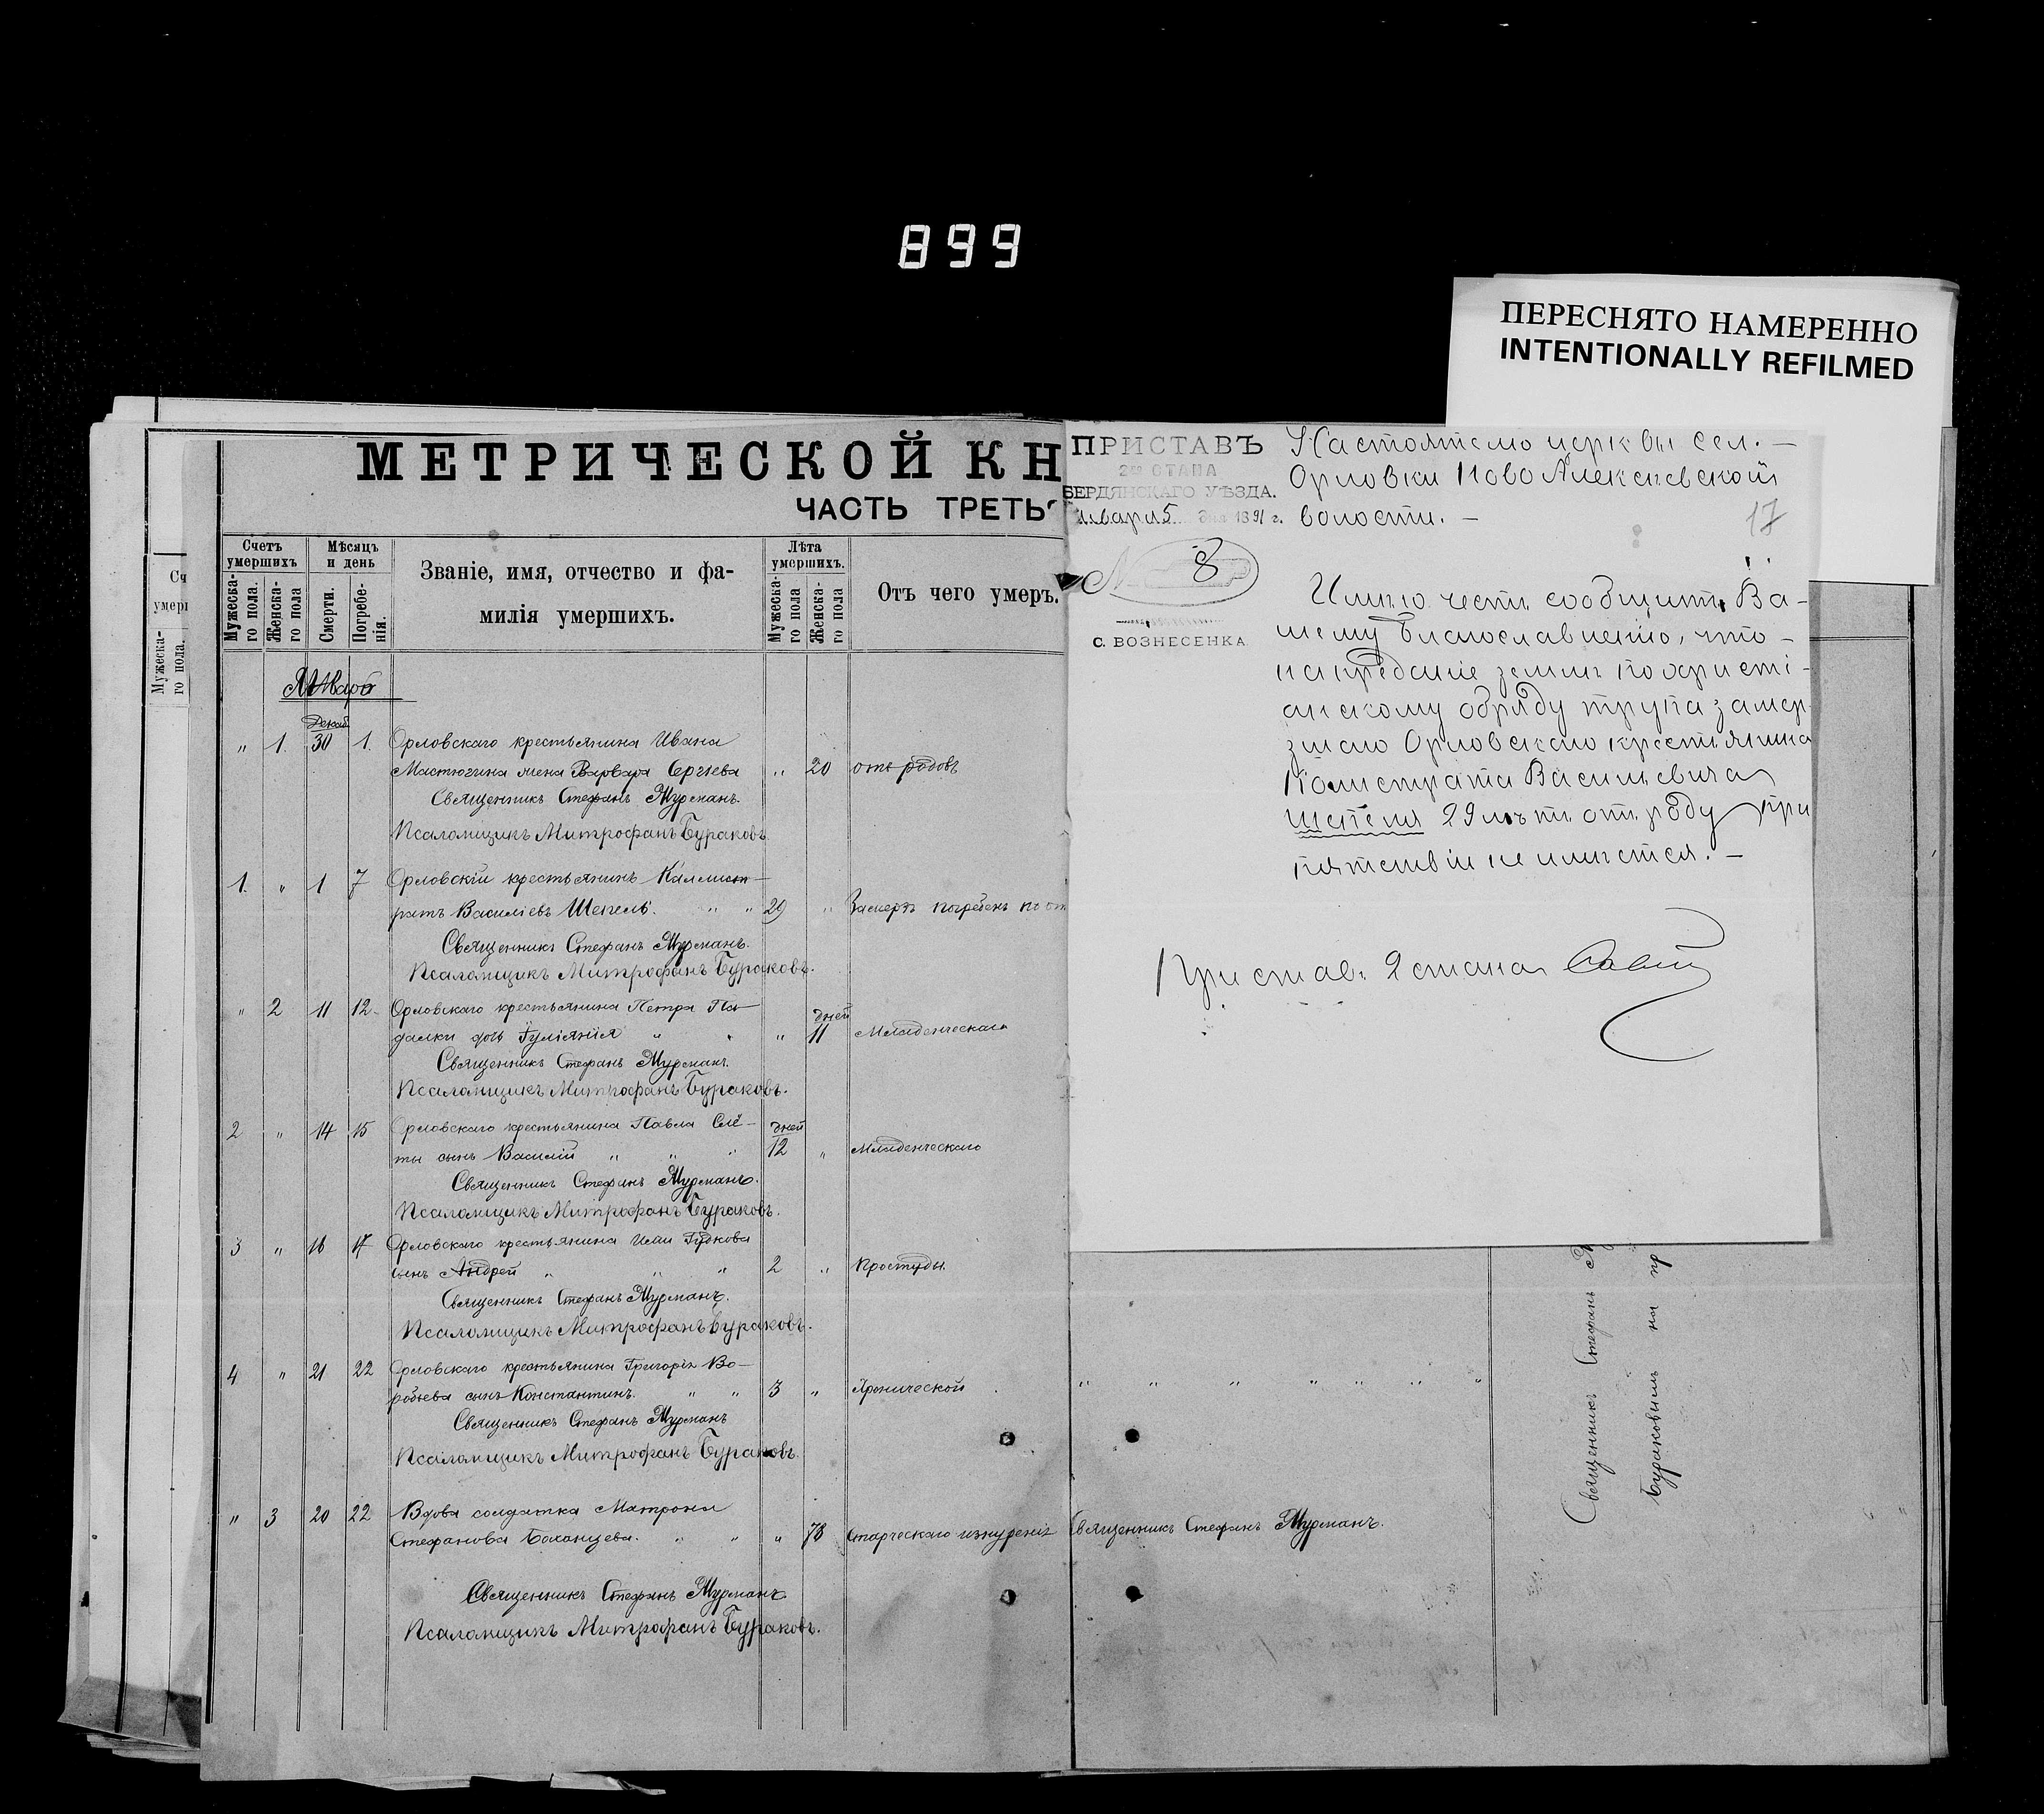 899
ПЕРЕСНЯТО НАМЕРЕННО
INTENTIONALLY REFILMED
МЕТРИЧЕСКОЙ КН
ЧАСТЬ ТРЕТЬ
Счетъ умершихъ
Мужеска-го пола.
Женска-го пола
Мѣсяцъ и день
Смерти.
Погребе-нія.
Званіе, имя, отчество и фа-
милія умершихъ.
Лѣта умершихъ.
Мужеска-го пола
Женска-го пола
Отъ чего умеръ.
Январь
Декаб.
" 1. 30 1. Орловскаго крестьянина Ивана
Мастюгина жена Варвара Сергѣева " 20 отъ родовъ
Священникъ Стефанъ Мурманъ.
Псаломщикъ Митрофанъ Бураковъ
1. " 1 7 Орловскій крестьянинъ Каллист-
ратъ Василіевъ Шепель. " " 29 " Замерзъ погребенъ по от
Священникъ Стефанъ Мурманъ.
Псаломщикъ Митрофанъ Бураковъ.
" 2 11 12 Орловскаго крестьянина Петра Па-
дней
далки дочь Іуліанія " " " 11 Младенческаго
Священникъ Стефанъ Мурманъ.
Псаломщикъ Митрофанъ Бураковъ.
2 " 14 15 Орловскаго крестьянина Павла Слё-
дней
ты сынъ Василій " " " 12 " Младенческаго
Священникъ Стефанъ Мурманъ.
Псаломщикъ Митрофанъ Бураковъ.
3 " 16 17 Орловскаго крестьянина Ильи Губкова
сынъ Андрей " " " 2 " Простуды.
Священникъ Стефанъ Мурманъ.
Псаломщикъ Митрофанъ Бураковъ.
4 " 21 22 Орловскаго крестьянина Григорія Во-
робьева сынъ Константинъ. " " 3 " Хронической " " " " " " "
Священникъ Стефанъ Мурманъ
Псаломщикъ Митрофанъ Бураковъ.
" 3 20 22 Вдова солдатка Матрона
Стефанова Баханцева. " " " 78 Старческаго изнуренія Священникъ Стефанъ Мурманъ.
Священникъ Стефанъ Мурманъ.
Псаломщикъ Митрофанъ Бураковъ.
ПРИСТАВЪ
2го СТАНА
БЕРДЯНСКАГО УѢЗДА.
Января 5 дня 1891 г.
№ 8
С. ВОЗНЕСЕНКА
Настоятелю церквы сел. -
Орловки Ново Алексѣевской
волости. -
17
Имѣю честь сообщить Ва-
шему Благословенію, что -
на преданіе землѣ по христі-
анскому обряду трупа замерз-
шаго Орловскаго крестьянина
Колистрата Васильевича
Шепеля 29 лѣтъ отъ роду при
пятствій не имѣется. -
Приставъ 2 стана
Священникъ Стефанъ
Бураковымъ на пр
Сч
умерш
Мужеска-го пола.